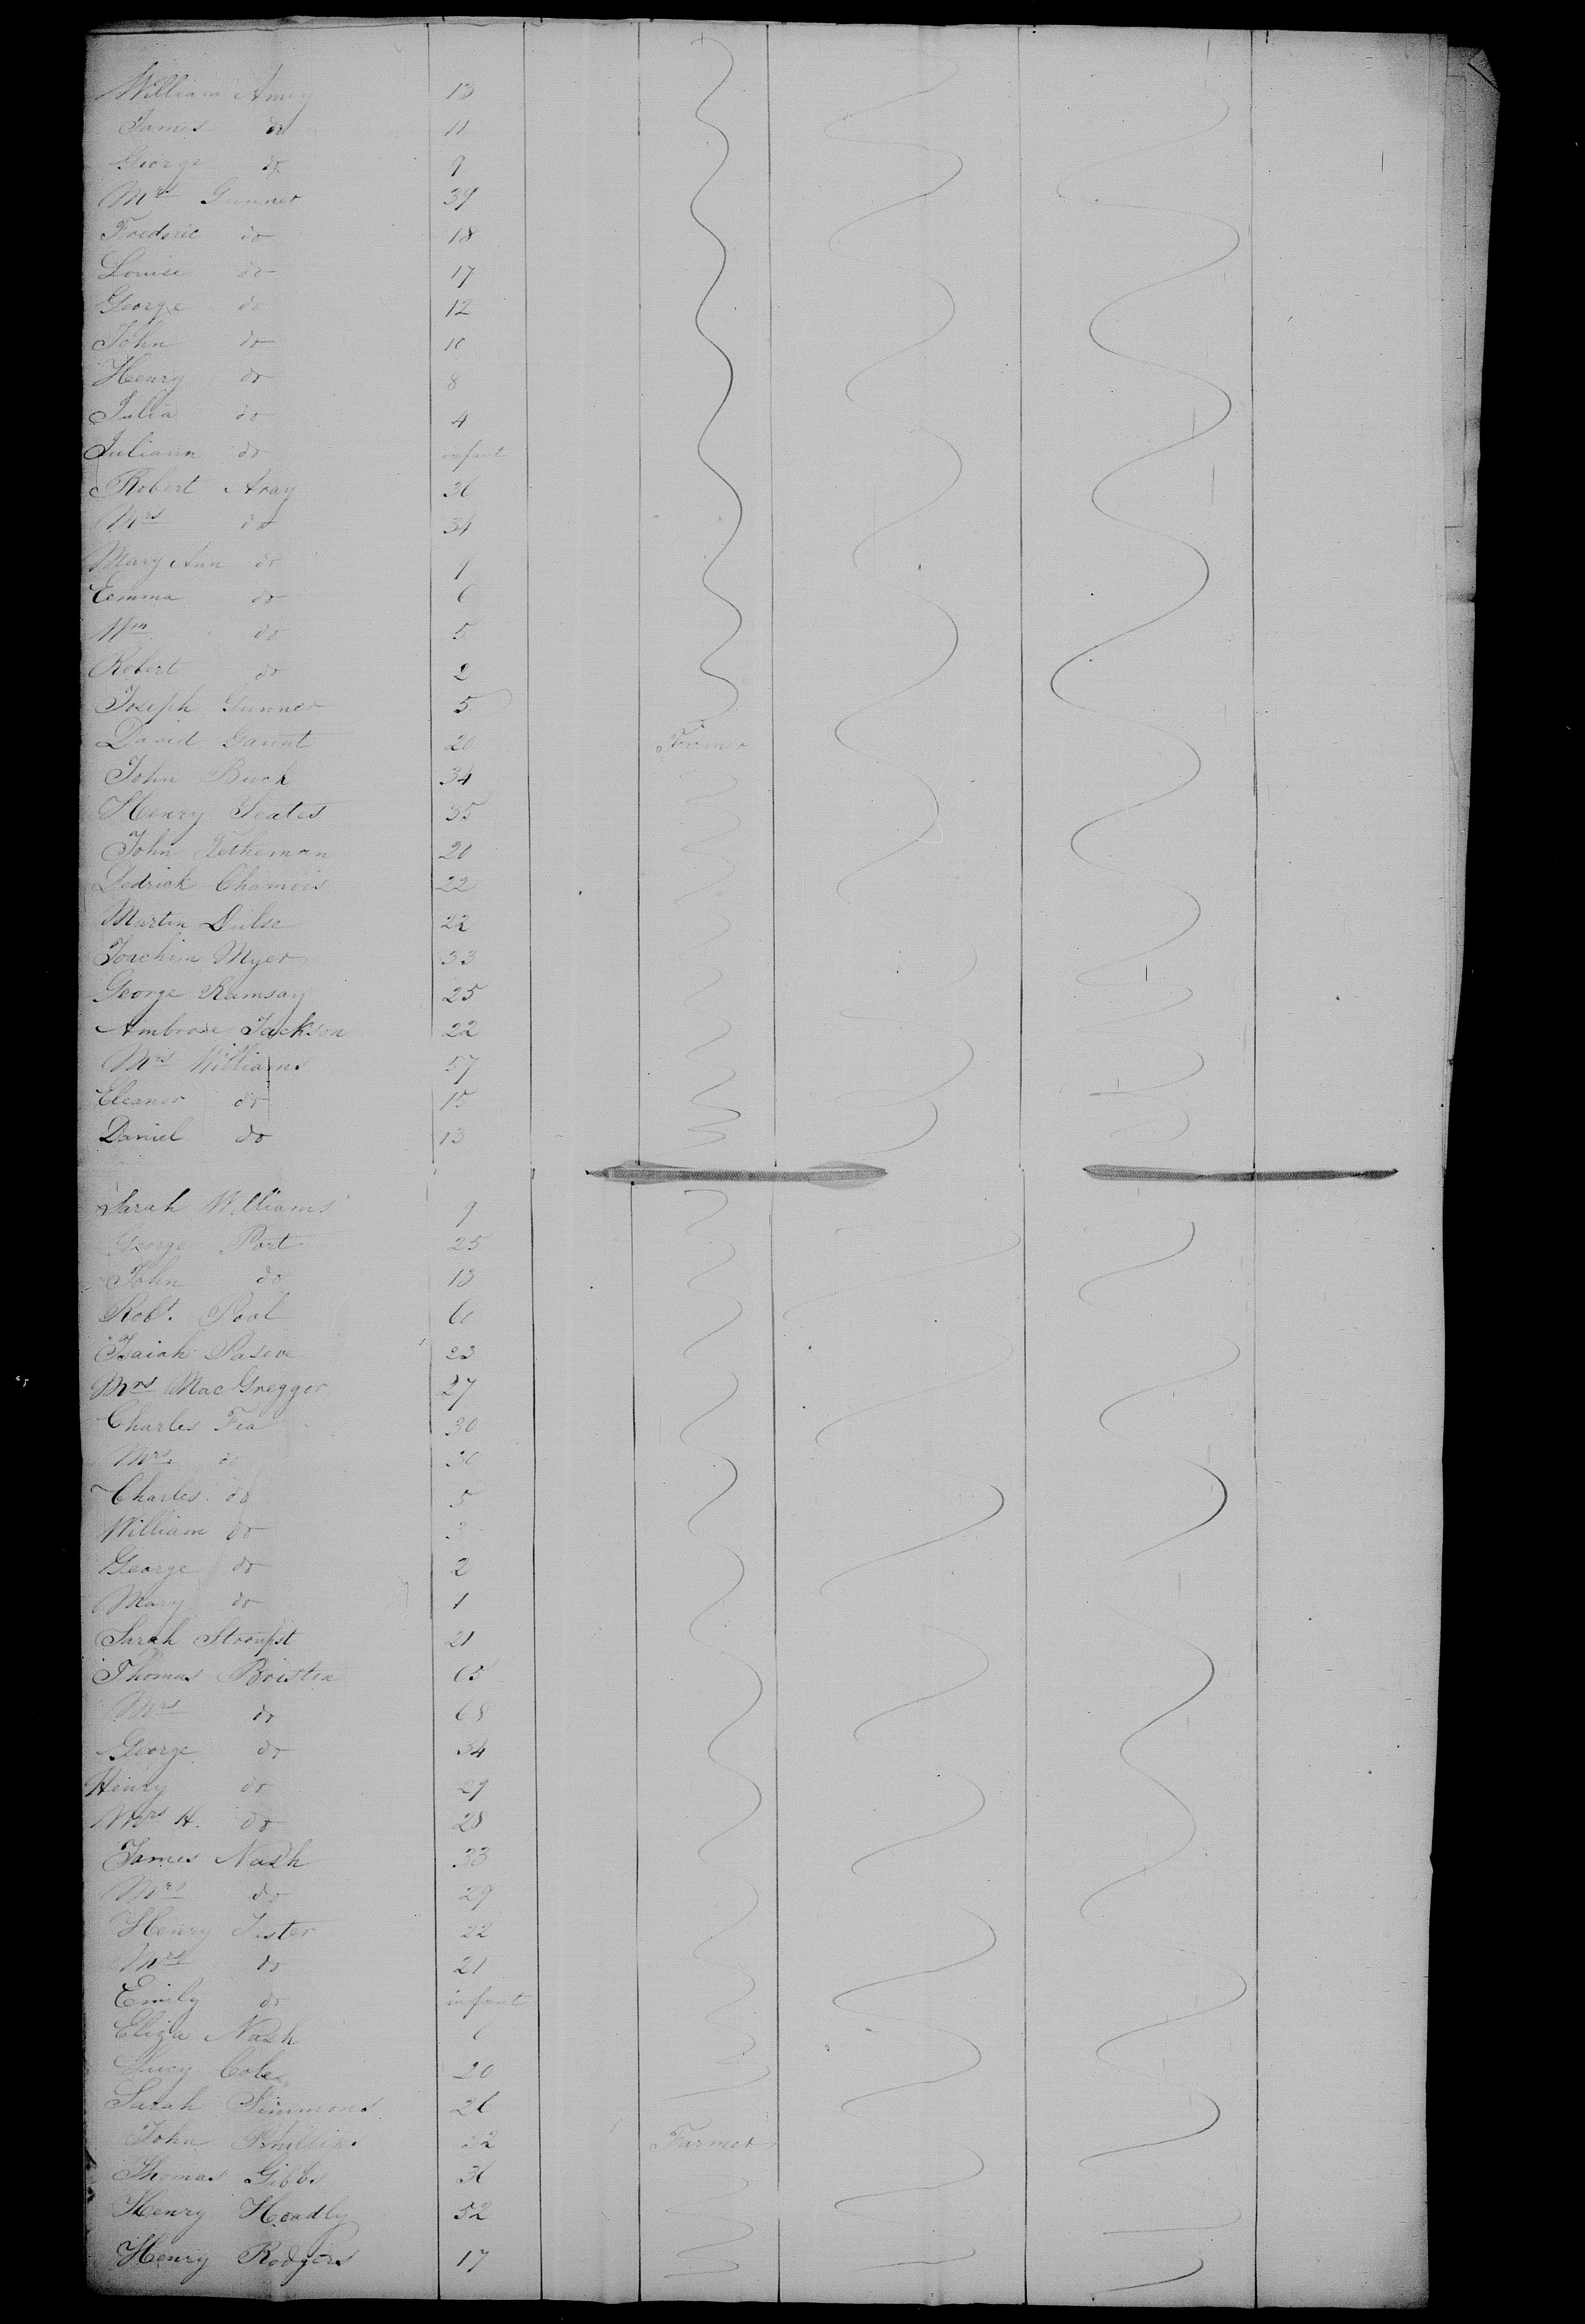 William Amey 13
James do 11
George do 9
Mrs Gunner 39
Frederic do 18
Louise do 17
George do 12
John do 10
Henry do 8
Julia do 4
Juliann do infant
Robert Aray 36
Mrs do 34
Mary Ann do 9
Emma do 6
Wm do 5
Robert do 2
Joseph Gunner 5
David Gaunt 20 Farmer
John Buck 34
Henry Yeates 35
John Tetheman 20
Dedrick Chamois 22
Martin Dulse 22
Joachim Myer 33
George Ramsay 25
Ambrose Jackson 22
Mrs Williams 57
Eleanor do 15
Daniel do 13
Sarah Williams 9
George Port 25
John do 13
Robt. Pool 60
Isaiah 23
Mrs Mac Gregger 27
Charles Fea 30
Mrs do 30
Charles do 5
William do 3
George do 2
Mary do 1
Sarah 21
Thomas Bristea 65
Mrs do 68
George do 34
Henry do 29
Mrs H. do 28
James Nash 33
Mrs do 29
Henry Tester 22
Mrs do 21
Emily do infant
Eliza Nash 6
Lucy Coles 20
Sarah Simmons 26
John Phillips 32 Farmer
Thomas Gibbs 36
Henry Hoadly 52
Henry Rodgers 17